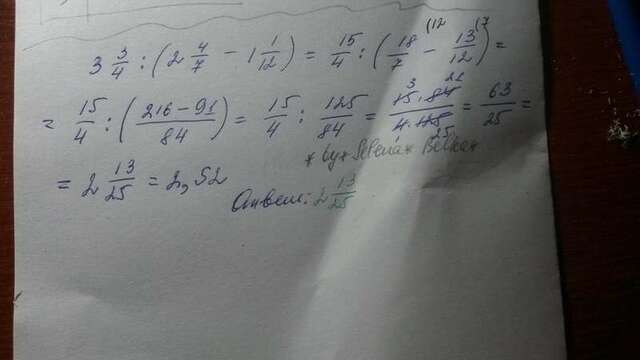 3 3/4 : (2 4/7 - 1 1/12) = 15/4 : (18/7 (12 - 13/12 (7) =
= 15/4 : (216 - 91/84) = 15/4 : 125/84 = 15·84/4· = 63/25 =
3 21 1 25
* by * Selena * Belka *
= 2 13/25 = 2,52
Ответ: 2 13/25